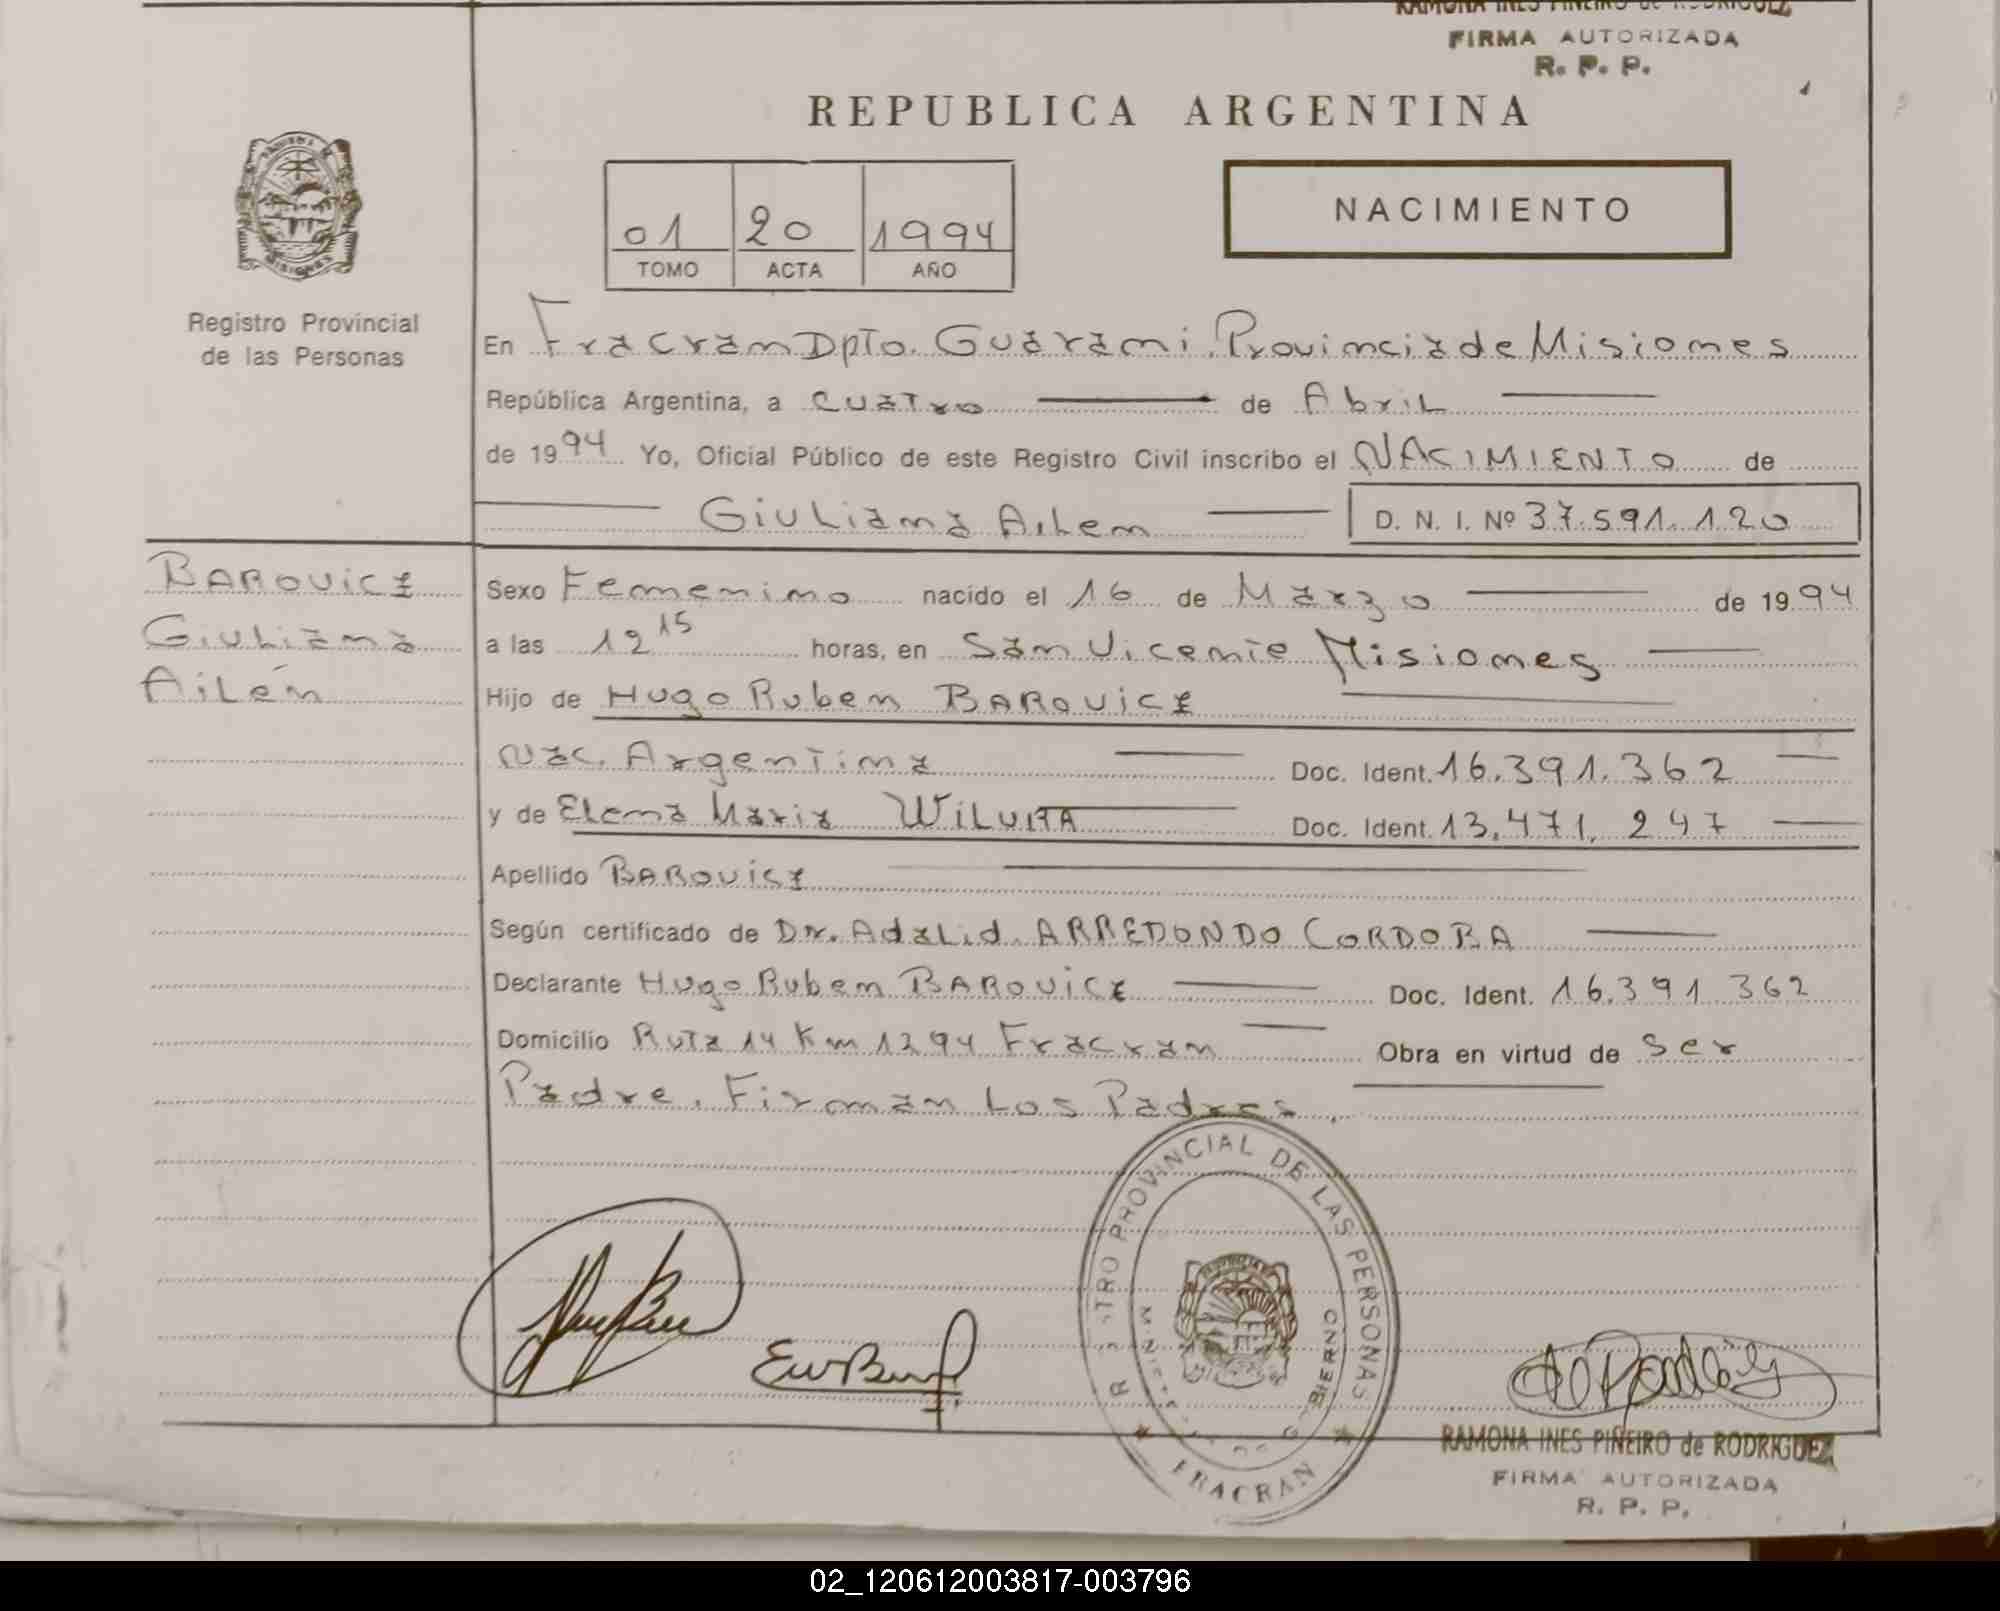 RAMONA INES PIÑEIRO de RODRIGUEZ
FIRMA AUTORIZADA
R. P. P.
REPUBLICA ARGENTINA
01 20 1994
TOMO ACTA AÑO
NACIMIENTO
MISIONES
Registro Provincial
de las Personas
En Fracran Dpto. Guarani. Provincia de Misiones
República Argentina, a cuatro de Abril
de 1994 Yo, Oficial Público de este Registro Civil inscribo el NACIMIENTO de
Giuliana Ailen D. N. I. Nº 37.591.120
BAROVICZ
Giuliana
Ailén
Sexo Femenino nacido el 16 de Marzo de 1994
a las 12 15 horas, en San Vicente Misiones
Hijo de Hugo Ruben BAROVICZ
Nac. Argentina Doc. Ident. 16.391.362
y de Elena Maria Doc. Ident. 13.471.247
Apellido BAROVICZ
Según certificado de Dr. Adalid ARREDONDO CORDOBA
Declarante Hugo Ruben BAROVICZ Doc. Ident. 16.391.362
Domicilio Ruta 14 Km 1294 Fracran Obra en virtud de ser
Padre. Firman Los Padres.
PROVINCIAL DE LAS PERSONAS
FRACRAN
RAMONA INES PIÑEIRO de RODRIGUEZ
FIRMA AUTORIZADA
R. P. P.
02_120612003817-003796